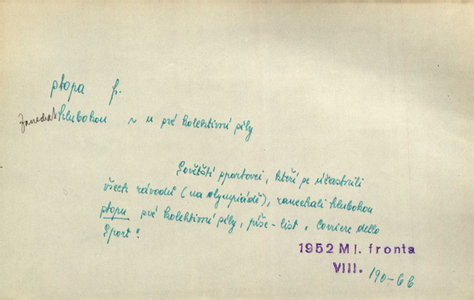 stopa f.
Zanechat hlubokou ~ u své kolektivní síly
Sovětští sportovci, kteří se účastnili
všech závodů (na olympiádě), zanechali hlubokou
stopu své kolektivní síly, píše list „Corriere dello
Sport".
1952 Ml. fronta
VIII. 190-66